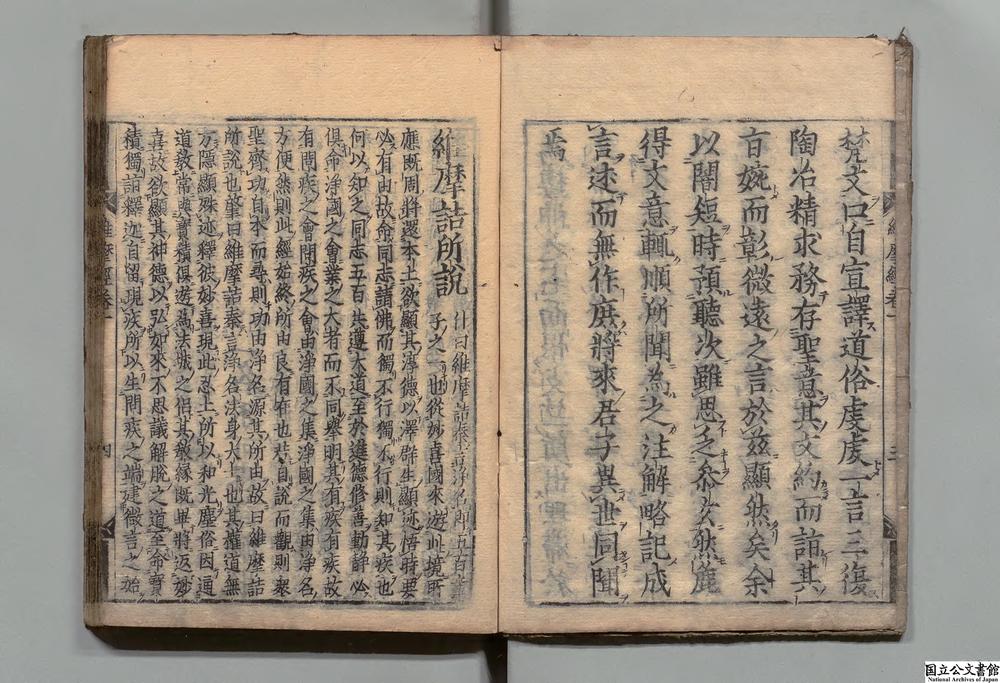 梵文口自宣譯道俗虔虔一言三復
陶冶精求務存聖意其文約而詣其
旨婉而彰微遠之言於茲顯然矣余
以闇短時預聽次雖思乏參玄然麁
得文意輒順所聞為之注解略記成
言述而無作庶將來君子異世同聞
焉
維摩經卷一
三
維摩詰所說
什曰維摩詰秦言淨名即五百童
子之一也從妙喜國來遊此境所
應既周將還本土欲顯其淳德以澤群生顯迹悟時要
必有由故命同志詣佛而獨不行獨不行則知其疾也
何以知之同志五百共遵大道至於進德修善動靜必
俱今淨國之會業之大者而不同舉明其有疾有疾故
有問疾之會問疾之會由淨國之集淨國之集由淨名
方便然則此經始終所由良有在也若自說而觀則衆
聖齊功自本而尋則功由淨名源其所由故曰維摩詰
所說也肇曰維摩詰秦言淨名法身大士也其權道無
方隱顯殊迹釋彼妙喜現此忍土所以和光塵俗因通
道教常與寶積俱遊為法城之侶其教緣既畢將返妙
喜故欲顯其神德以弘如來不思議解脫之道至命寶
積獨詣釋迦自留現疾所以生問疾之端建微言之始
維摩經卷一
四
国立公文書館
National Archives of Japan